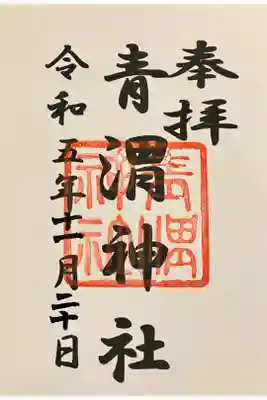 奉拝
青渭神社
令和五年十一月二十日